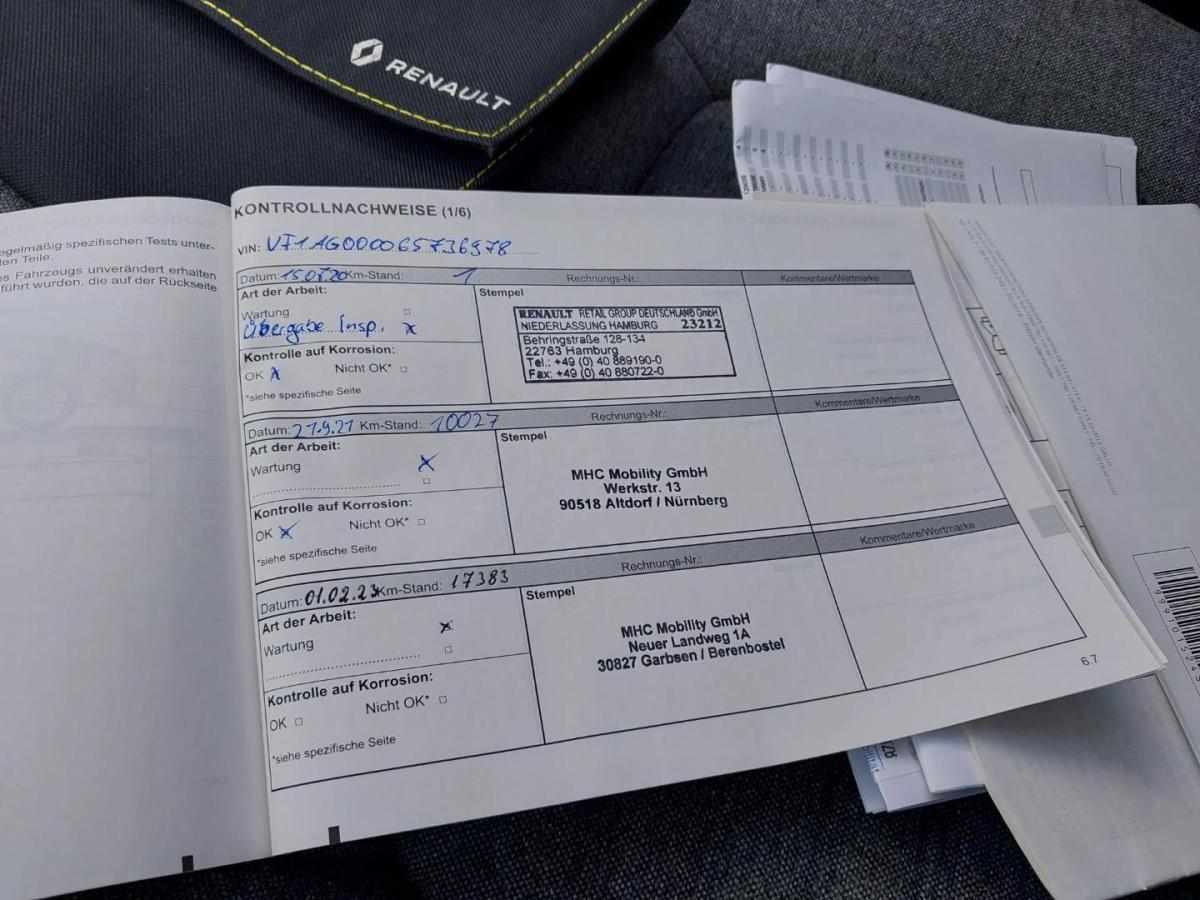 RENAULT
egelmäßig spezifischen Tests unter-
ten Teile.
es Fahrzeugs unverändert erhalten
führt wurden, die auf der Rückseite
KONTROLLNACHWEISE (1/6)
VIN: VF1AG000065736978
Datum: 15.07.20 Km-Stand: 1 Rechnungs-Nr.: Kommentare/Wertmarke
Art der Arbeit:
Wartung
Übergabe Insp. x
Kontrolle auf Korrosion:
OK x Nicht OK*
*siehe spezifische Seite
Stempel
RENAULT RETAIL GROUP DEUTSCHLAND GmbH
NIEDERLASSUNG HAMBURG 23212
Behringstraße 128-134
22763 Hamburg
Tel.: +49 (0) 40 889190-0
Fax: +49 (0) 40 880722-0
Datum: 21.9.21 Km-Stand: 10027 Rechnungs-Nr.: Kommentare/Wertmarke
Art der Arbeit:
Wartung x
Kontrolle auf Korrosion:
OK x Nicht OK*
*siehe spezifische Seite
Stempel
MHC Mobility GmbH
Werkstr. 13
90518 Altdorf / Nürnberg
Datum: 01.02.23 Km-Stand: 17383 Rechnungs-Nr.: Kommentare/Wertmarke
Art der Arbeit:
Wartung x
Kontrolle auf Korrosion:
OK Nicht OK*
*siehe spezifische Seite
Stempel
MHC Mobility GmbH
Neuer Landweg 1A
30827 Garbsen / Berenbostel
6.7